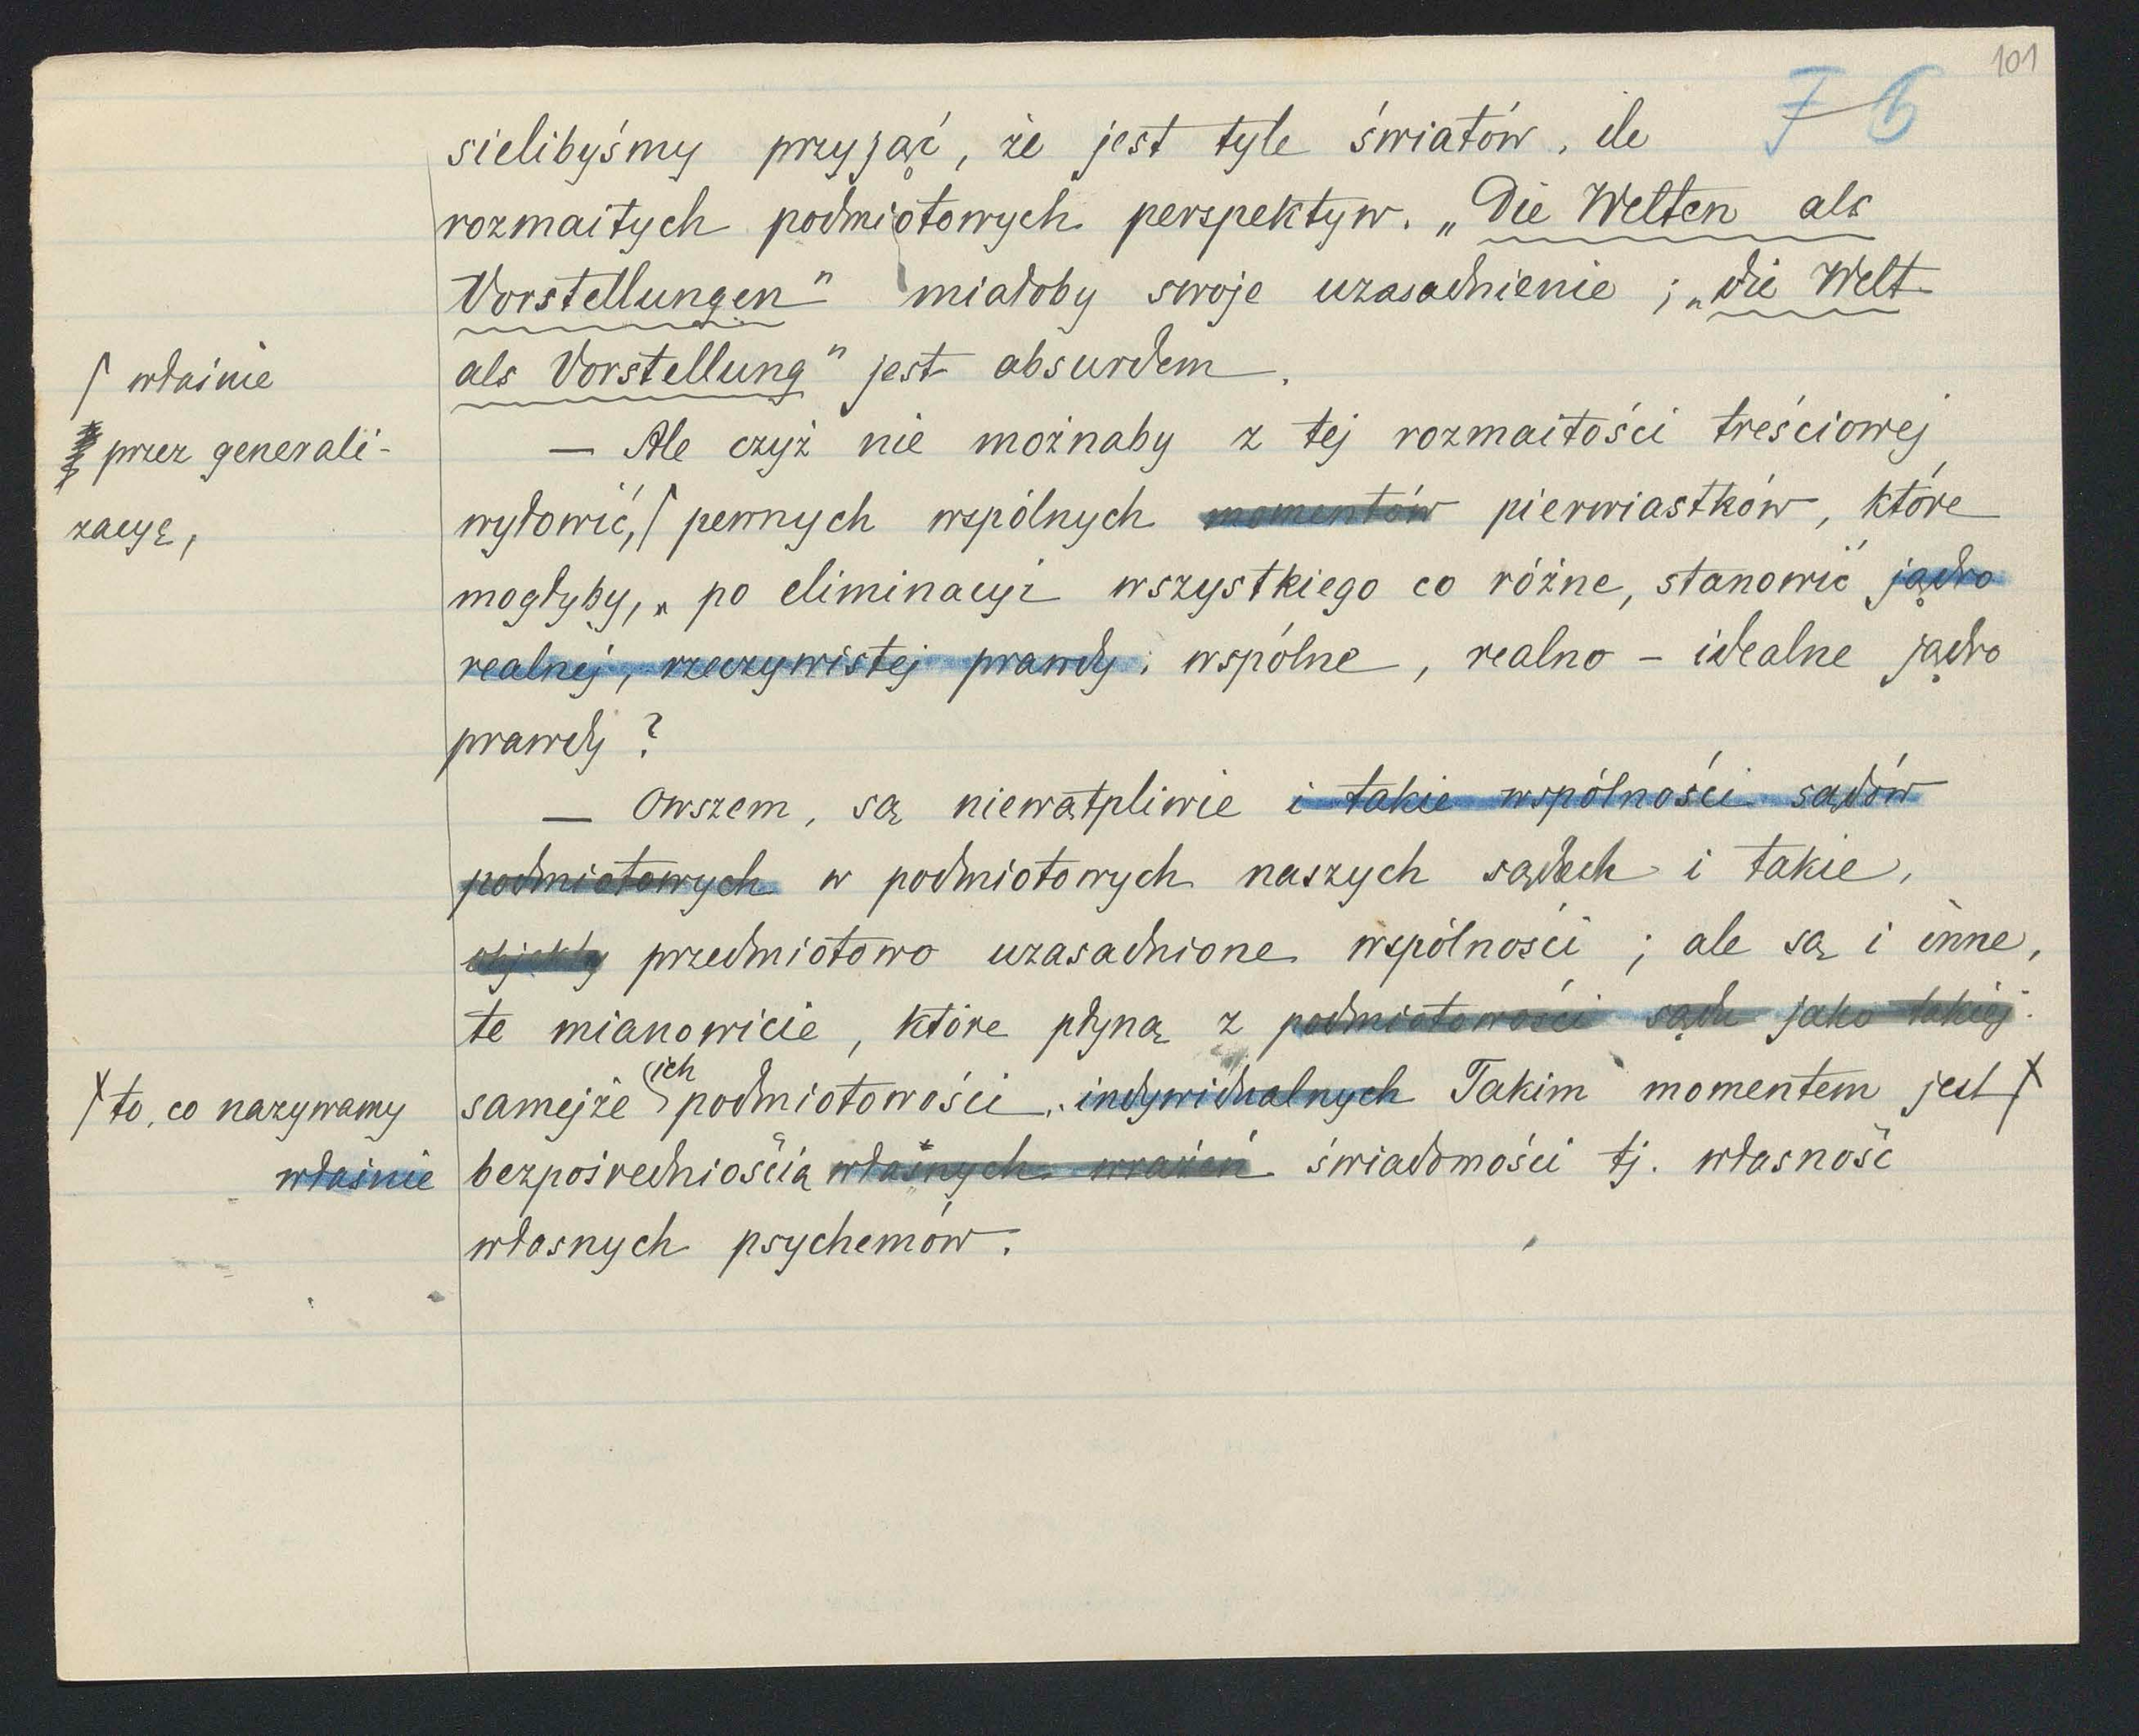 101
7 6
sielibyśmy przyjąć, że jest tyle światów, ile
rozmaitych podmiotowych perspektyw. „Die Welten als
Vorstellungen" miałoby swoje uzasadnienie ; „die Welt
als Vorstellung" jest absurdem.
— Ale czyż nie możnaby z tej rozmaitości treściowej
wyłowić, / pewnych wspólnych momentów pierwiastków, które
mogłyby, po eliminacyi wszystkiego co różne, stanowić jądro
realnej, rzeczywistej prawdy, wspólne, realno - idealne jądro
prawdy ?
— Owszem, są niewątpliwie i takie wspólności sądów
podmiotowych w podmiotowych naszych sądach i takie,
objekty przedmiotowo uzasadnione wspólności ; ale są i inne,
te mianowicie, które płyną z podmiotowości sądu jako takiej.
samejże ich podmiotowości. indywidualnych Takim momentem jest
bezpośredniością własnych wrażeń świadomości tj. własność
własnych psychemów.
/ właśnie
przez generali-
zacyę,
/ to, co nazywamy
właśnie